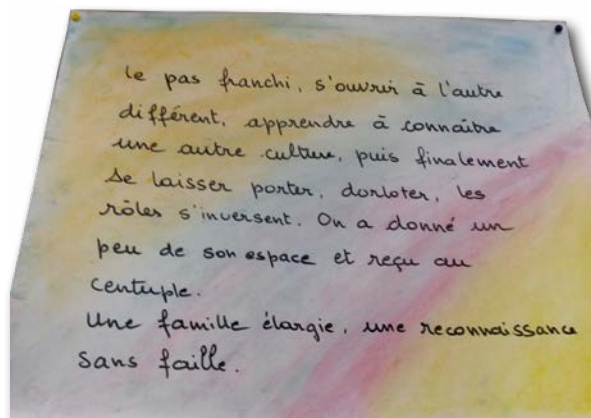 le pas franchi, s'ouvrir à l'autre
différent, apprendre à connaître
une autre culture, puis finalement
se laisser porter, dorloter, les
rôles s'inversent. On a donné un
peu de son espace et reçu au
centuple.
Une famille élargie, une reconnaissance
sans faille.